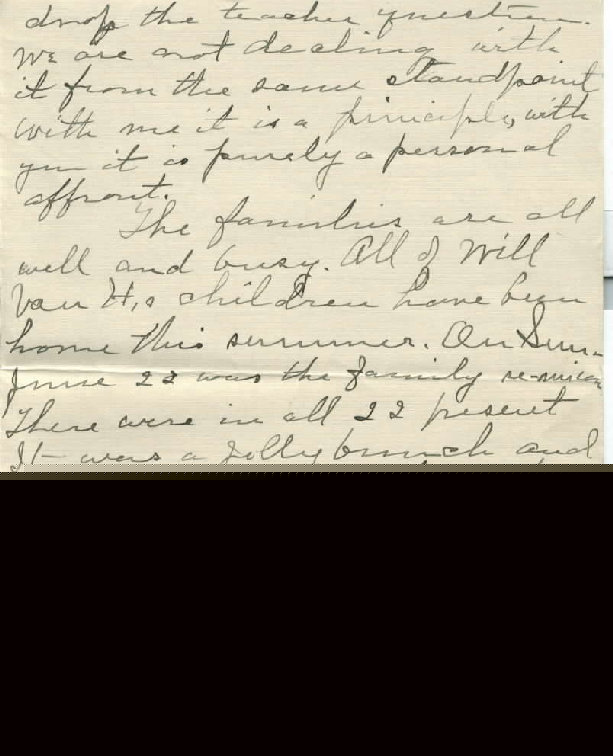 drop the teacher question.
We are not dealing with
it from the same standpoint
with me it is a principle, with
you it is purely a personal
affront.
The families are all
well and busy. All of Will
Van H,s children have been
home this summer. On Sun-
June 22 was the family re-union
There were in all 22 present
It was a jolly bunch and